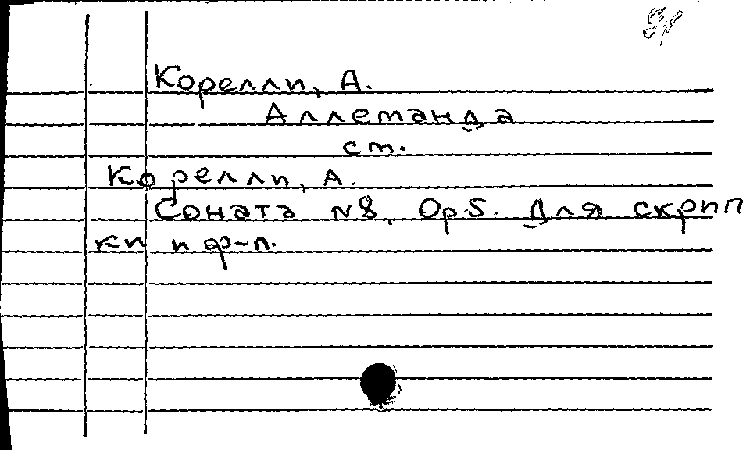 Корелли, А.
Аллеманда
см.
Корелли, А.
Соната №8, Op.5. Для скрип
ки и ф-п.